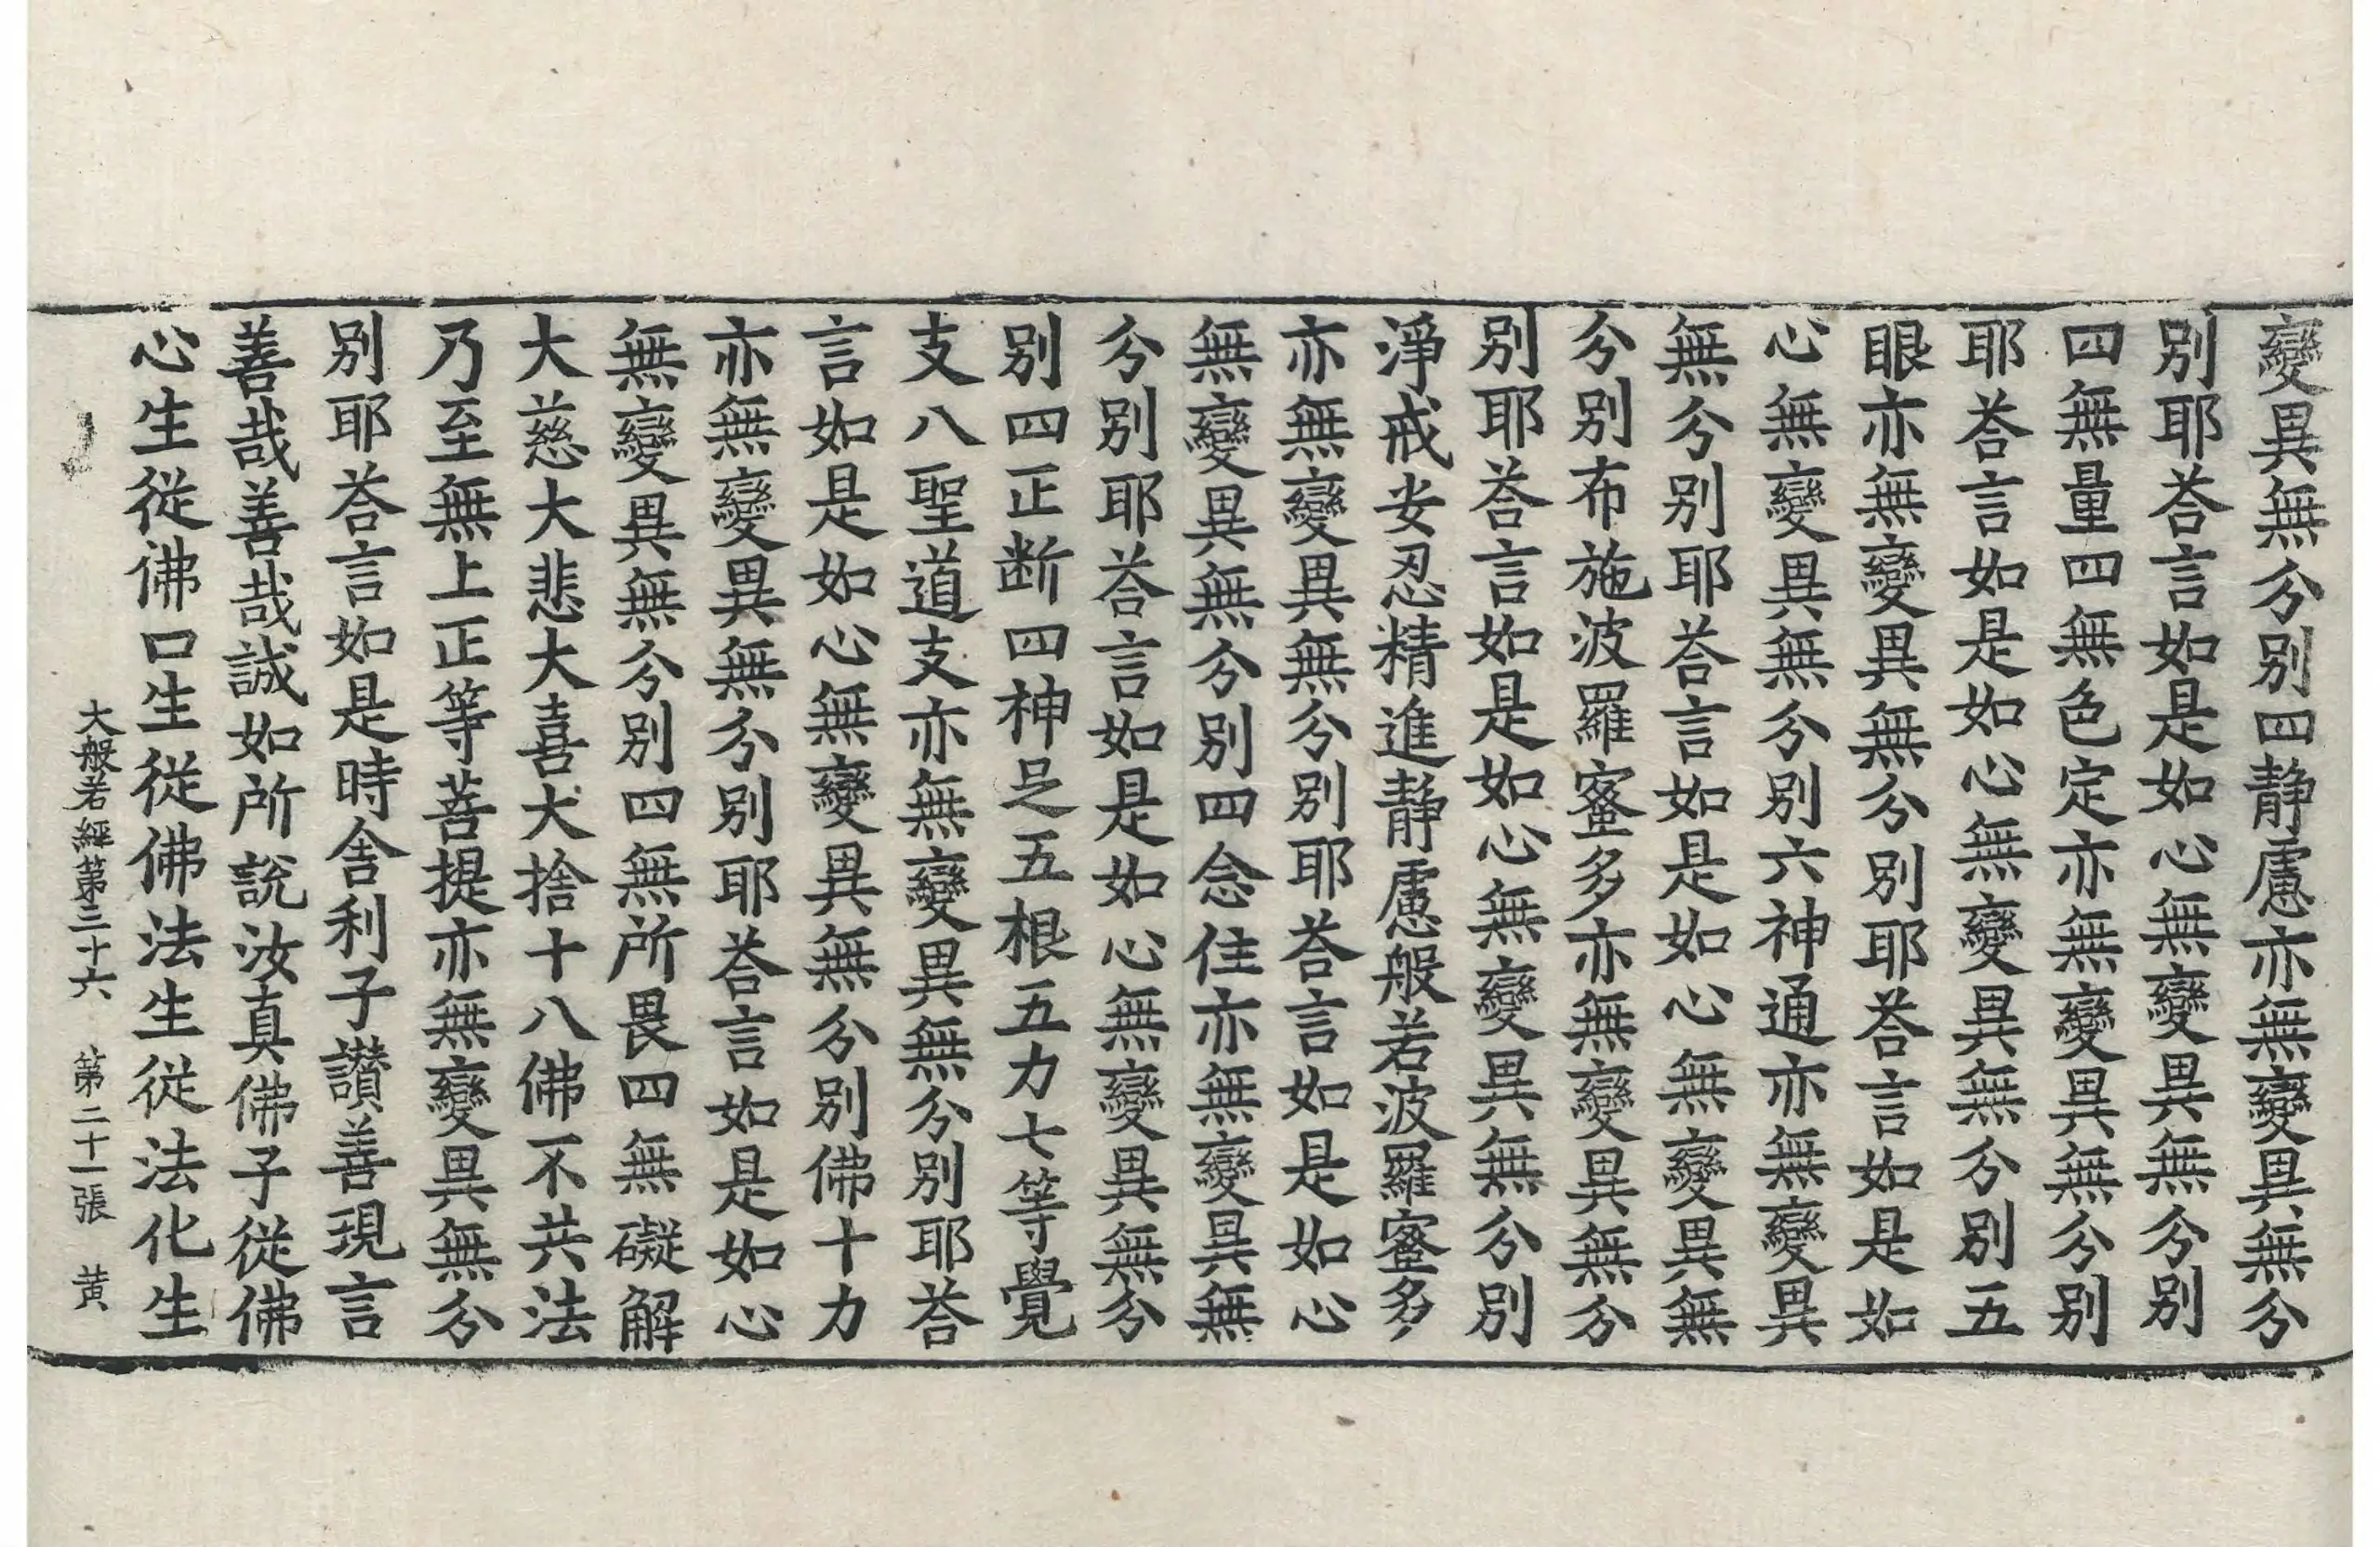 變異無分別四静慮亦無變異無分
別耶荅言如是如心無變異無分別
四無量四無色定亦無變異無分別
耶荅言如是如心無變異無分別五
眼亦無變異無分別耶荅言如是如
心無變異無分別六神通亦無變異
無分別耶荅言如是如心無變異無
分別布施波羅蜜多亦無變異無分
別耶荅言如是如心無變異無分別
淨戒安忍精進靜慮般若波羅蜜多
亦無變異無分別耶荅言如是如心
無變異無分別四念住亦無變異無
分別耶荅言如是如心無變異無分
別四正断四神足五根五力七等覺
支八聖道支亦無變異無分別耶荅
言如是如心無變異無分別佛十力
亦無變異無分別耶荅言如是如心
無變異無分別四無所畏四無礙解
大慈大悲大喜大捨十八佛不共法
乃至無上正等菩提亦無變異無分
別耶荅言如是時舍利子讃善現言
善哉善哉誠如所說汝真佛子從佛
心生從佛口生從佛法生從法化生
大般若經第三十六　第二十一張　黄